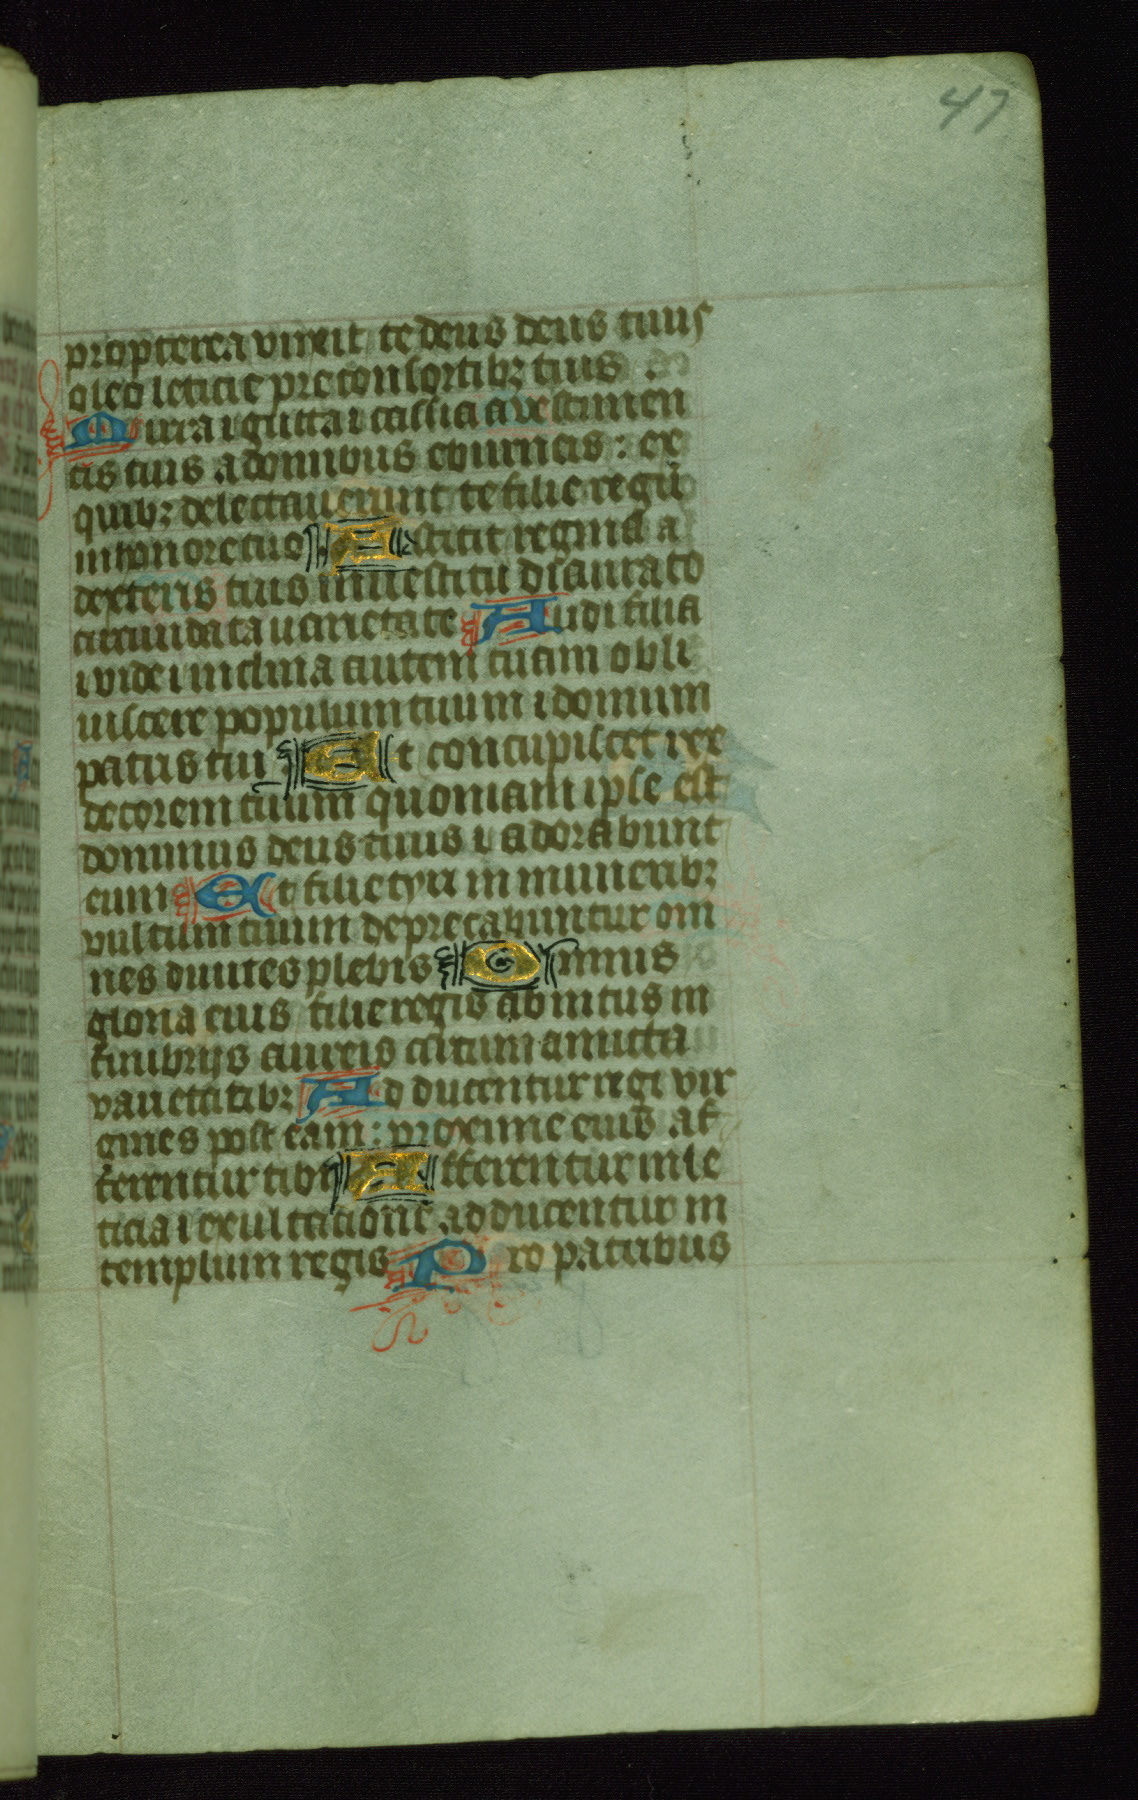 47
propterea vnxit te deus deus tuus
oleo leticie pre consortibꝫ tuis
Mirra ⁊ gutta ⁊ cassia a vestimen
tis tuis a domibus eburneis : ex
quibꝫ delectauerunt te filie regū
in honore tuo Astitit regina a
dextris tuis in uestitu deaurato
circumdata uarietate Audi filia
⁊ vide ⁊ inclina aurem tuam obli
uiscere populum tuum ⁊ domum
patris tui Et concupiscet rex
decorem tuum quoniam ipse est
dominus deus tuus ⁊ adorabunt
eum Et filie tyri in muneribꝫ
vultum tuum deprecabuntur om
nes diuites plebis Omnis
gloria eius filie regis ab intus in
fimbrijs aureis circum amicta
varietatibꝫ Adducentur regi vir
gines post eam : proxime eius af
ferentur tibi Afferentur in le
ticia ⁊ exultatione adducentur in
templum regis Pro patribus